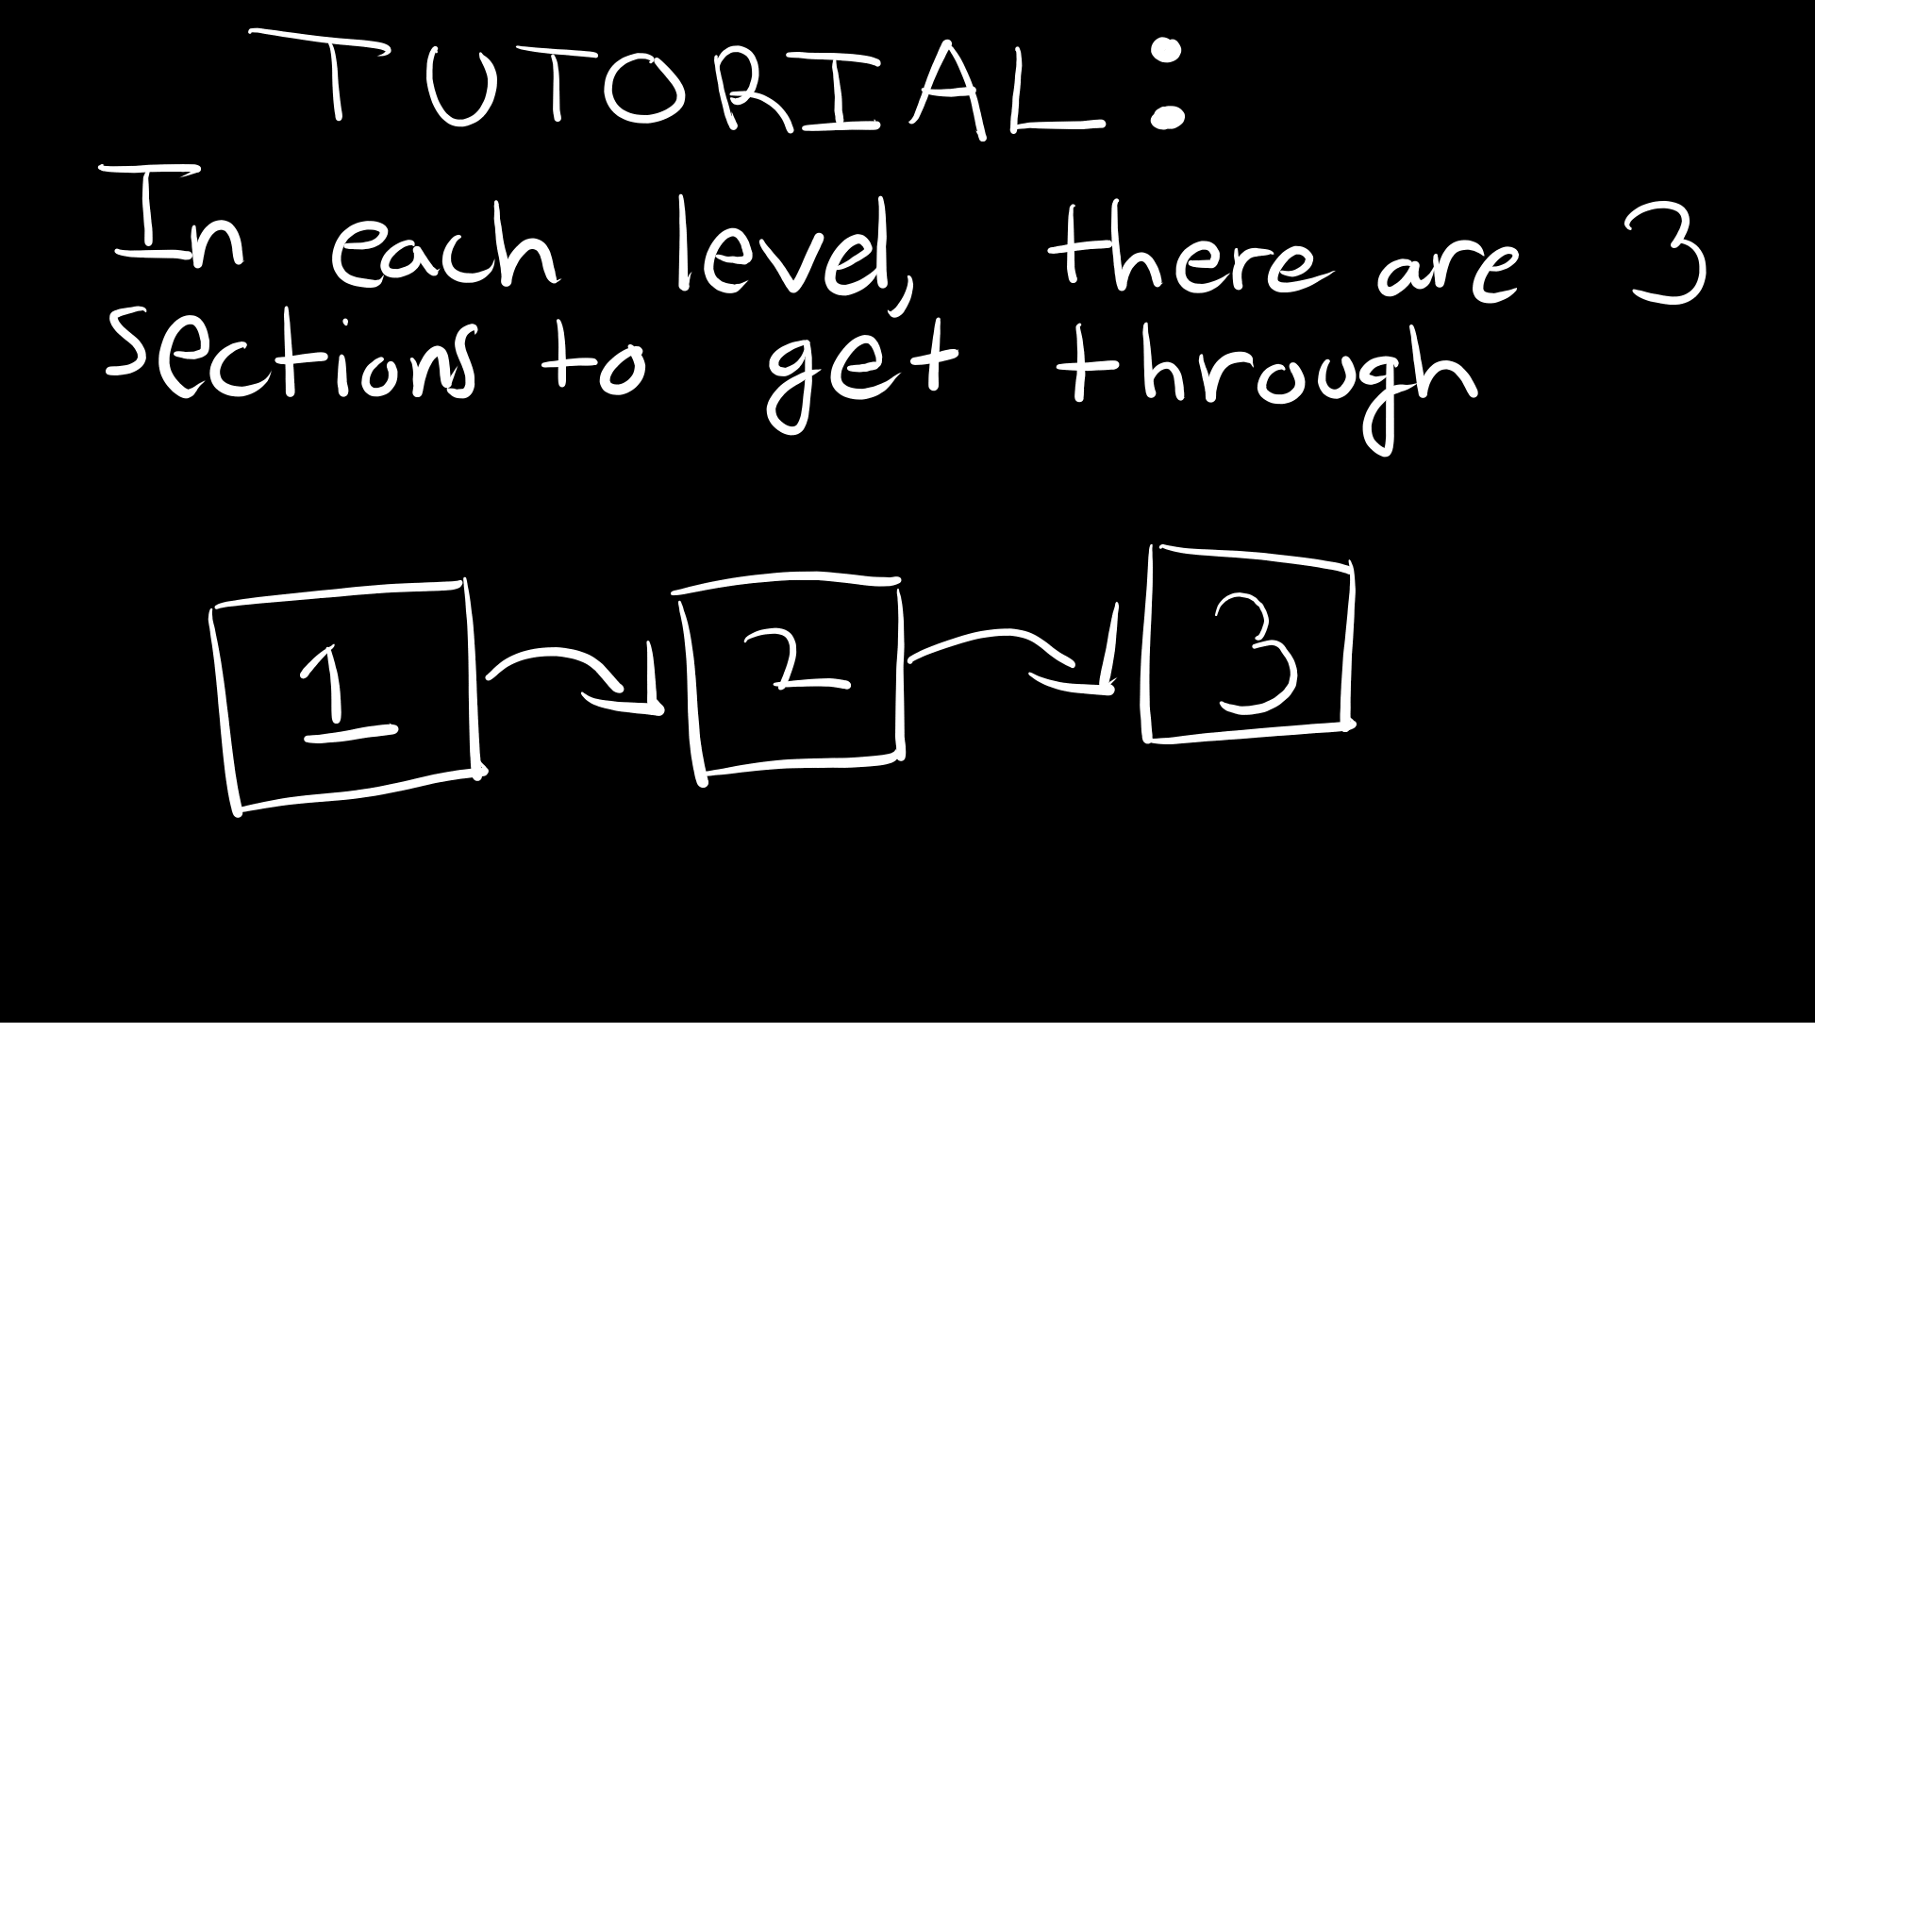 TUTORIAL:
In each level, there are 3
Sections to get through
1 2 3